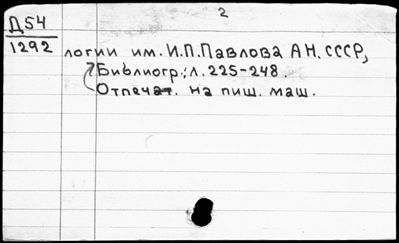 2
Д54
1292
логии им. И.П.Павлова АН. СССР,
Библиогр.: л. 225-248.
Отпечат. на пиш. маш.